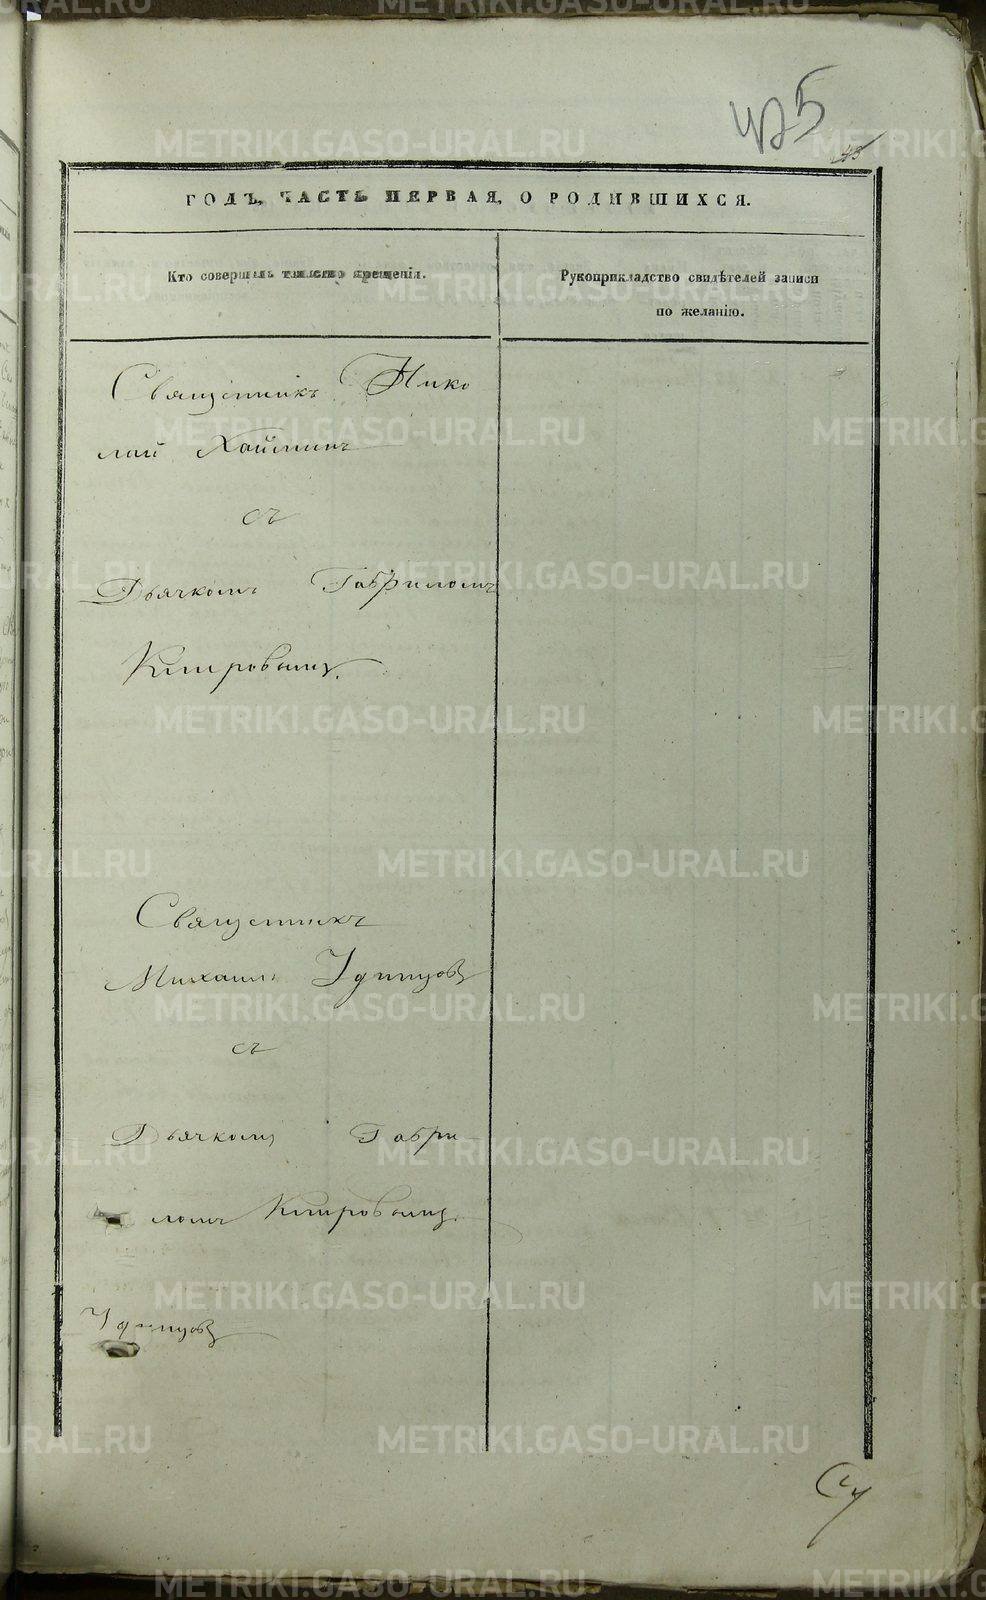 425
45
ГОДЪ, ЧАСТЬ ПЕРВАЯ, О РОДИВШИХСЯ.
Кто совершалъ таинство крещенія.
Рукоприкладство свидѣтелей записи
по желанію.
Священникъ Нико
лай Хайминъ
съ
Дьячкомъ Гавриломъ
Кипровымъ.
Священникъ
Михаилъ Удинцовъ
съ
Дьячкомъ Гаври
ломъ Кипровымъ.
Удинцовъ
METRIKI.GASO-URAL.RU